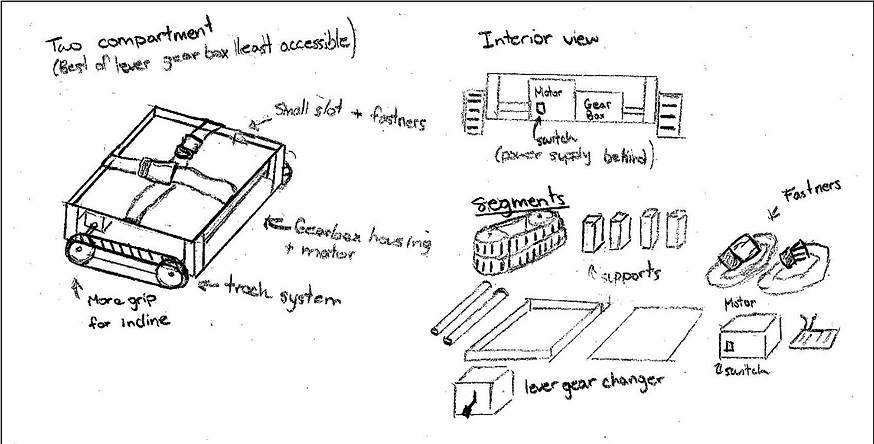 Two compartment
(Best of lever gear box least accessible)
Small slot + fastners
Gearbox housing
+ motor
track system
More grip
for incline
Interior view
Motor
Gear
Box
switch
(power supply behind)
Segments
supports
Fastners
Motor
switch
lever gear changer